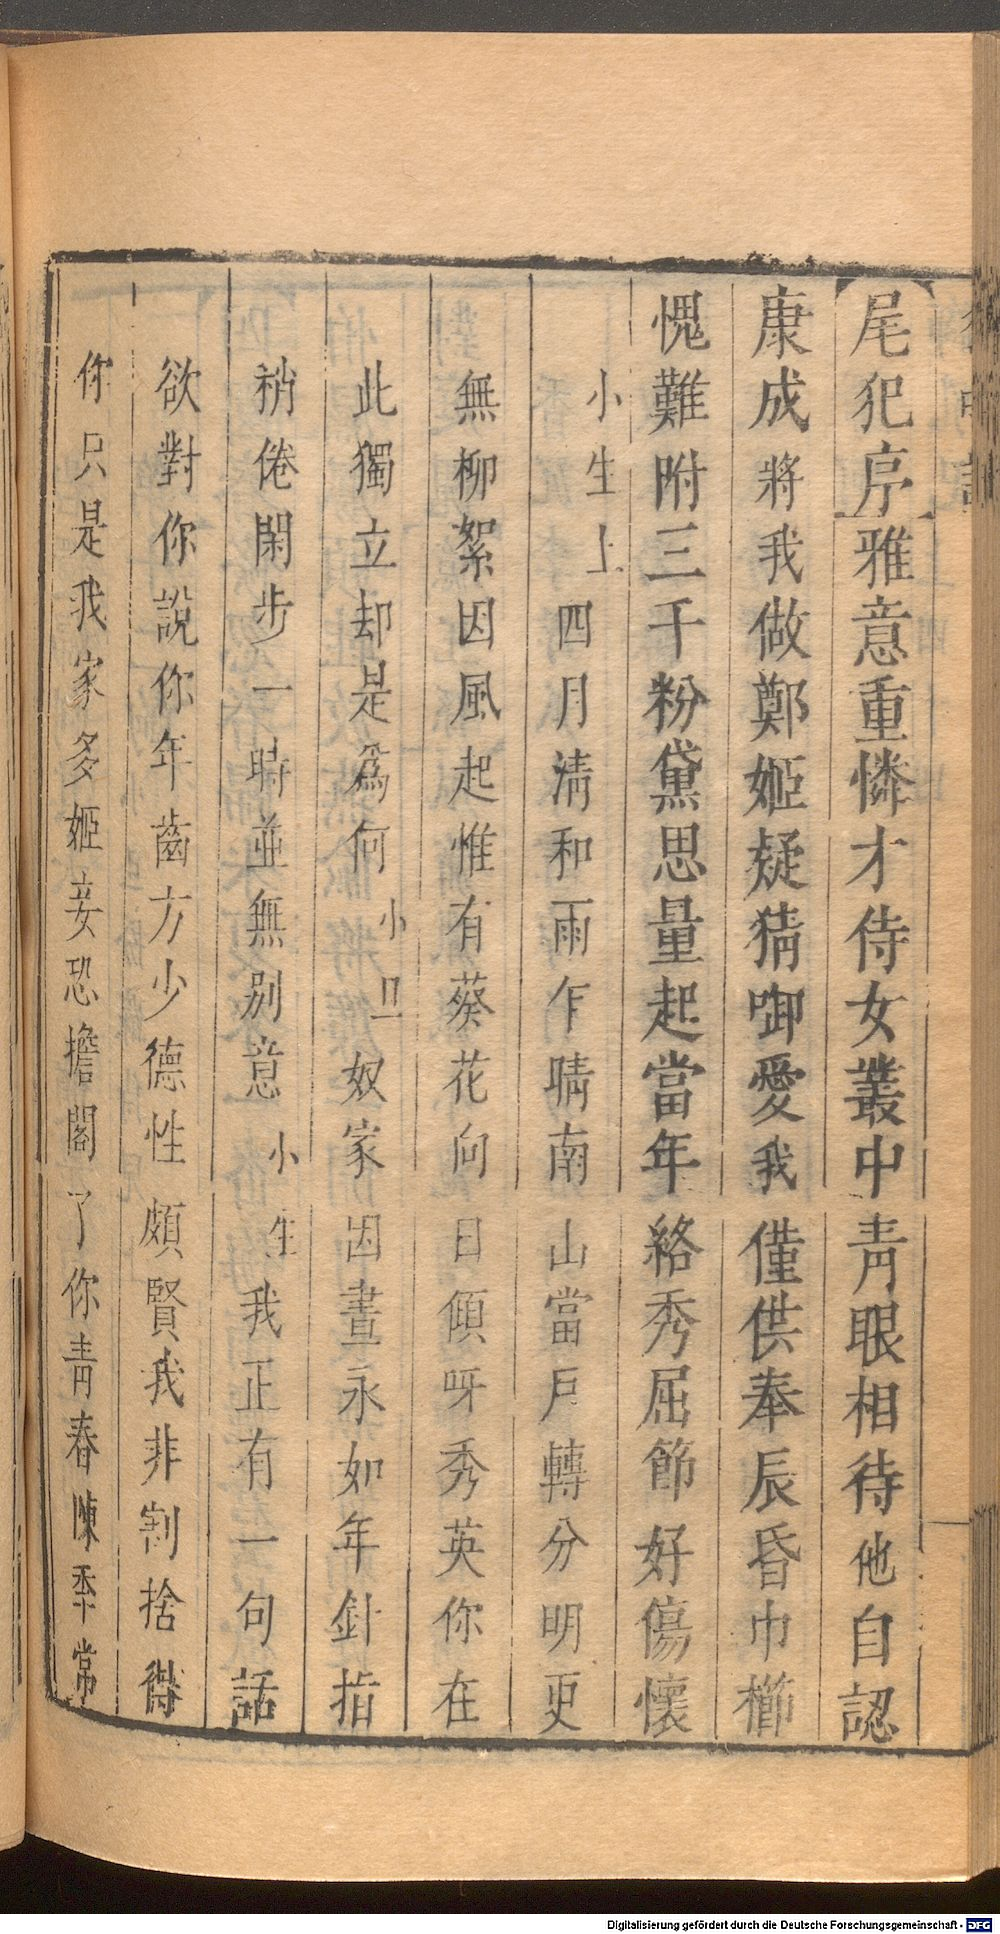 尾犯序雅意重憐才侍女叢中青眼相待他自認
康成將我做鄭姬疑猜啣愛我僅供奉辰昏巾櫛
愧難附三千粉黛思量起當年絡秀屈節好傷懷
小生上四月清和雨乍晴南山當戶轉分明更
無柳絮因風起惟有葵花向日傾呀秀英你在
此獨立却是爲何小旦奴家因晝永如年針指
稍倦閑步一時並無別意小生我正有一句話
欲對你說你年齒方少德性頗賢我非割捨得
你只是我家多姬妾恐擔閣了你青春陳季常
Digitalisierung gefördert durch die Deutsche Forschungsgemeinschaft - DFG